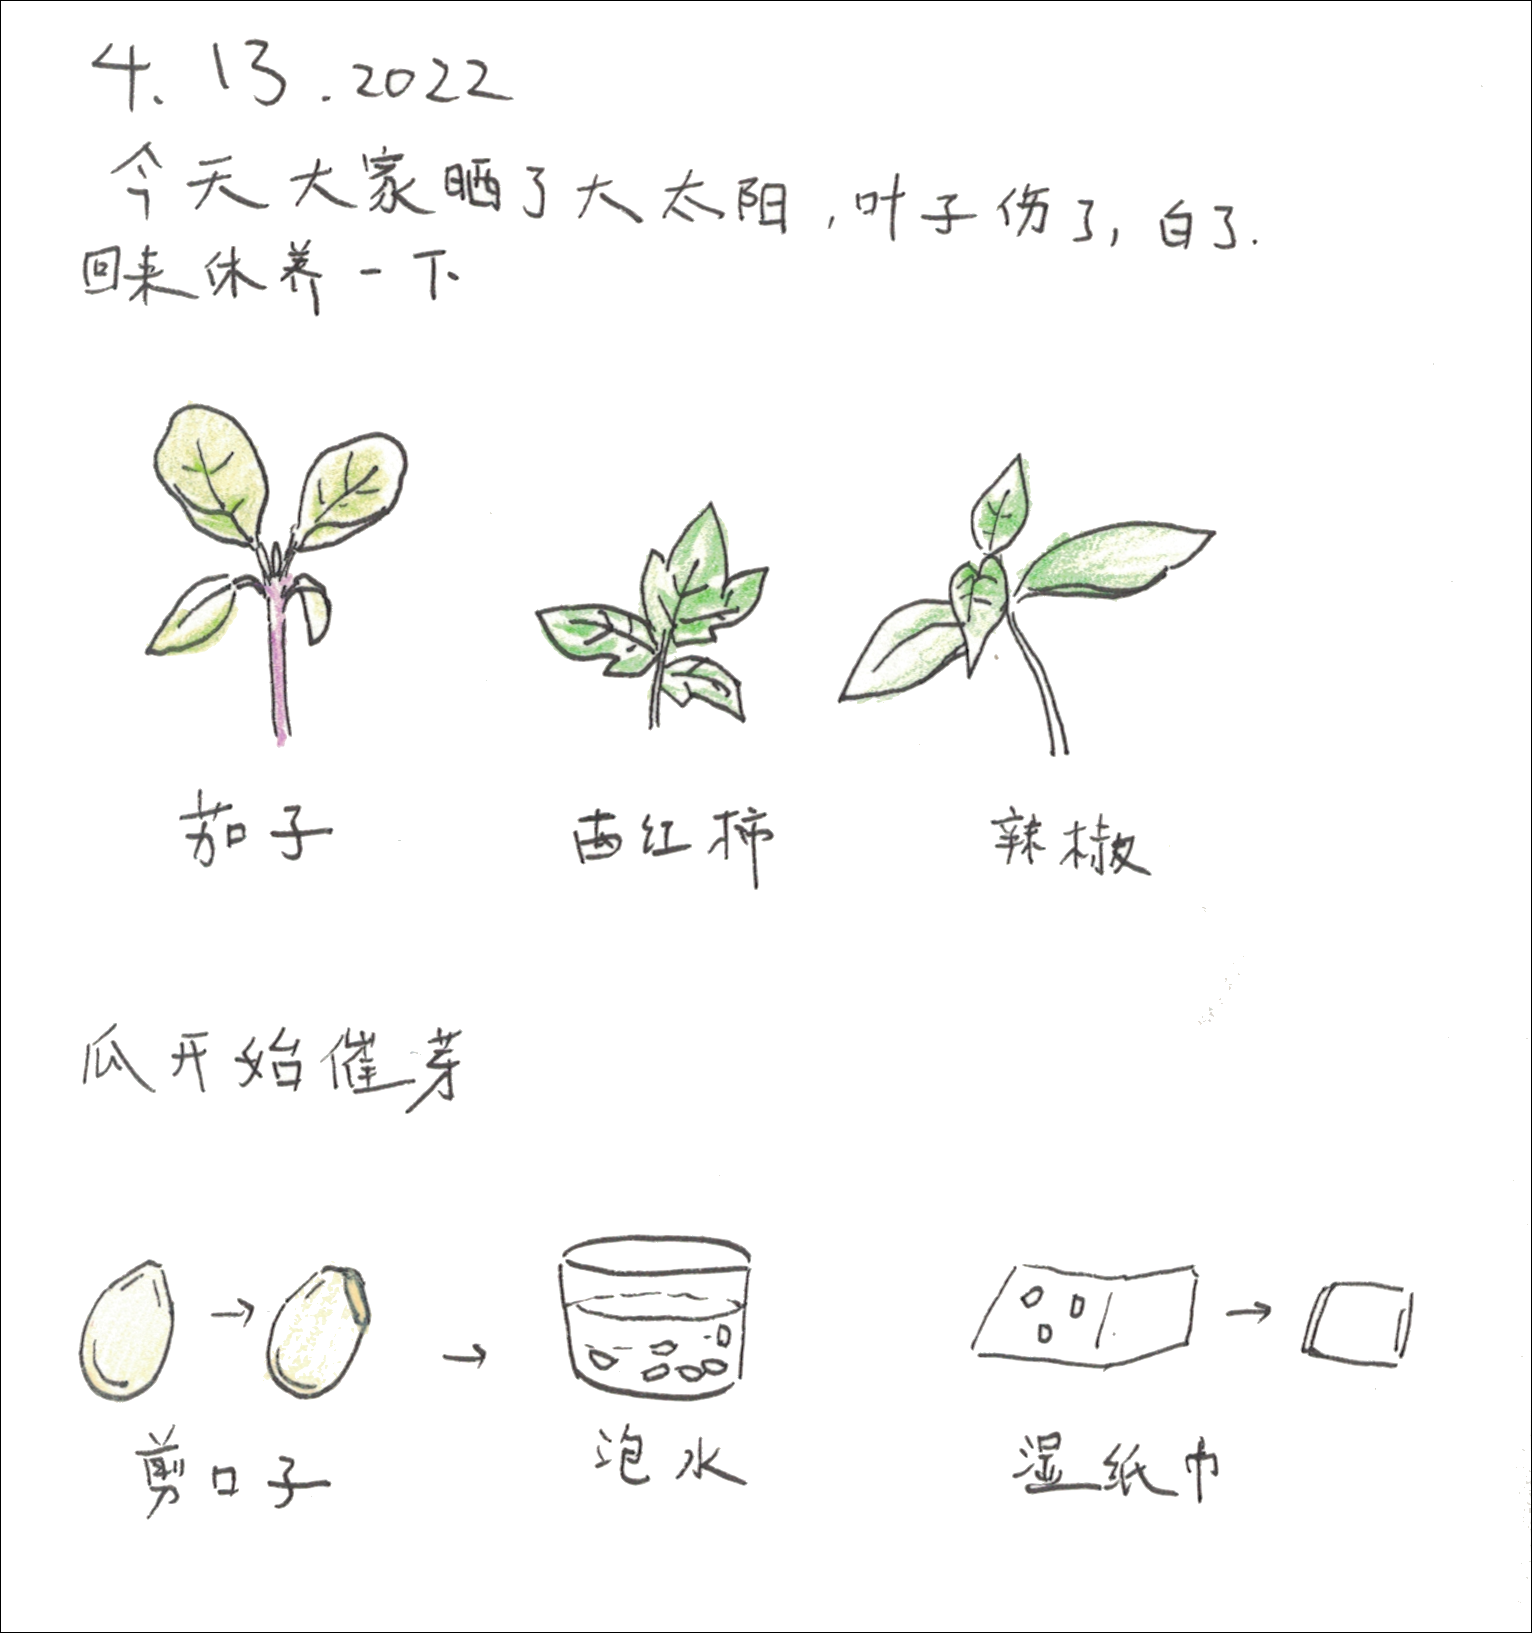 4.13.2022
今天大家晒了大太阳,叶子伤了,白了.
回来休养一下
茄子 西红柿 辣椒
瓜开始催芽
剪口子 泡水 湿纸巾